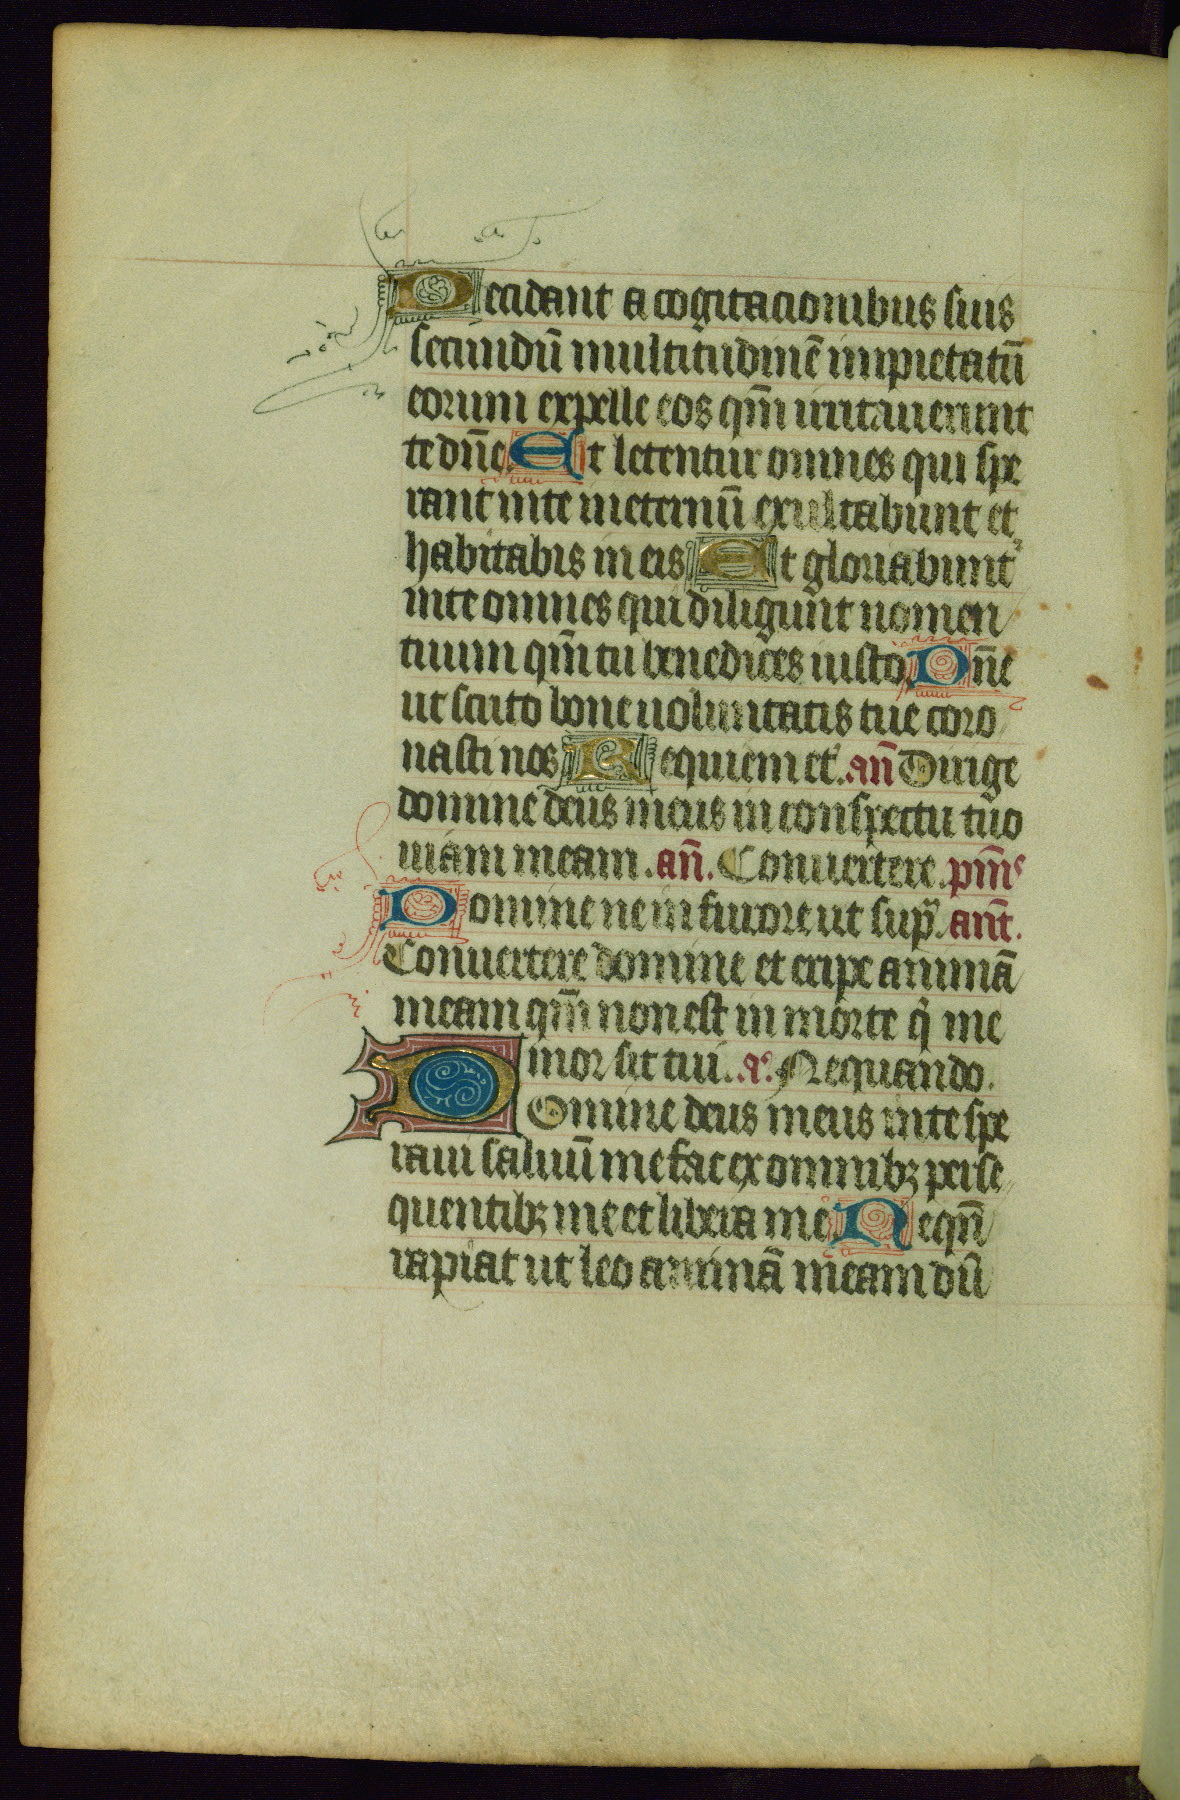 Decidant a cogitacionibus suis
secundū multitudinē impietatū
eorum expelle eos qm̄ irritauerunt
te dn̄e Et letentur omnes qui spe
rant in te in eternū exultabunt et
habitabis in eis Et gloriabunt᷑
in te omnes qui diligunt nomen
tuum qm̄ tu benedices iusto Dn̄e
ut scuto bone uoluntatis tue coro
nasti nos Requiem et̾. an̄ Dirige
domine deus meus in conspectu tuo
uiam meam. an̄. Conuertere. pm̄s
Domine ne in furore ut sup̾. ant̄.
Conuertere domine et eripe animā
meam qm̄ non est in morte q̾ me
mor sit tui. aᵒ. Nequando.
Domine deus meus in te spe
raui saluū me fac ex omnibꝫ perse
quentibꝫ me et libera me Nequn̄
rapiat ut leo animā meam dū